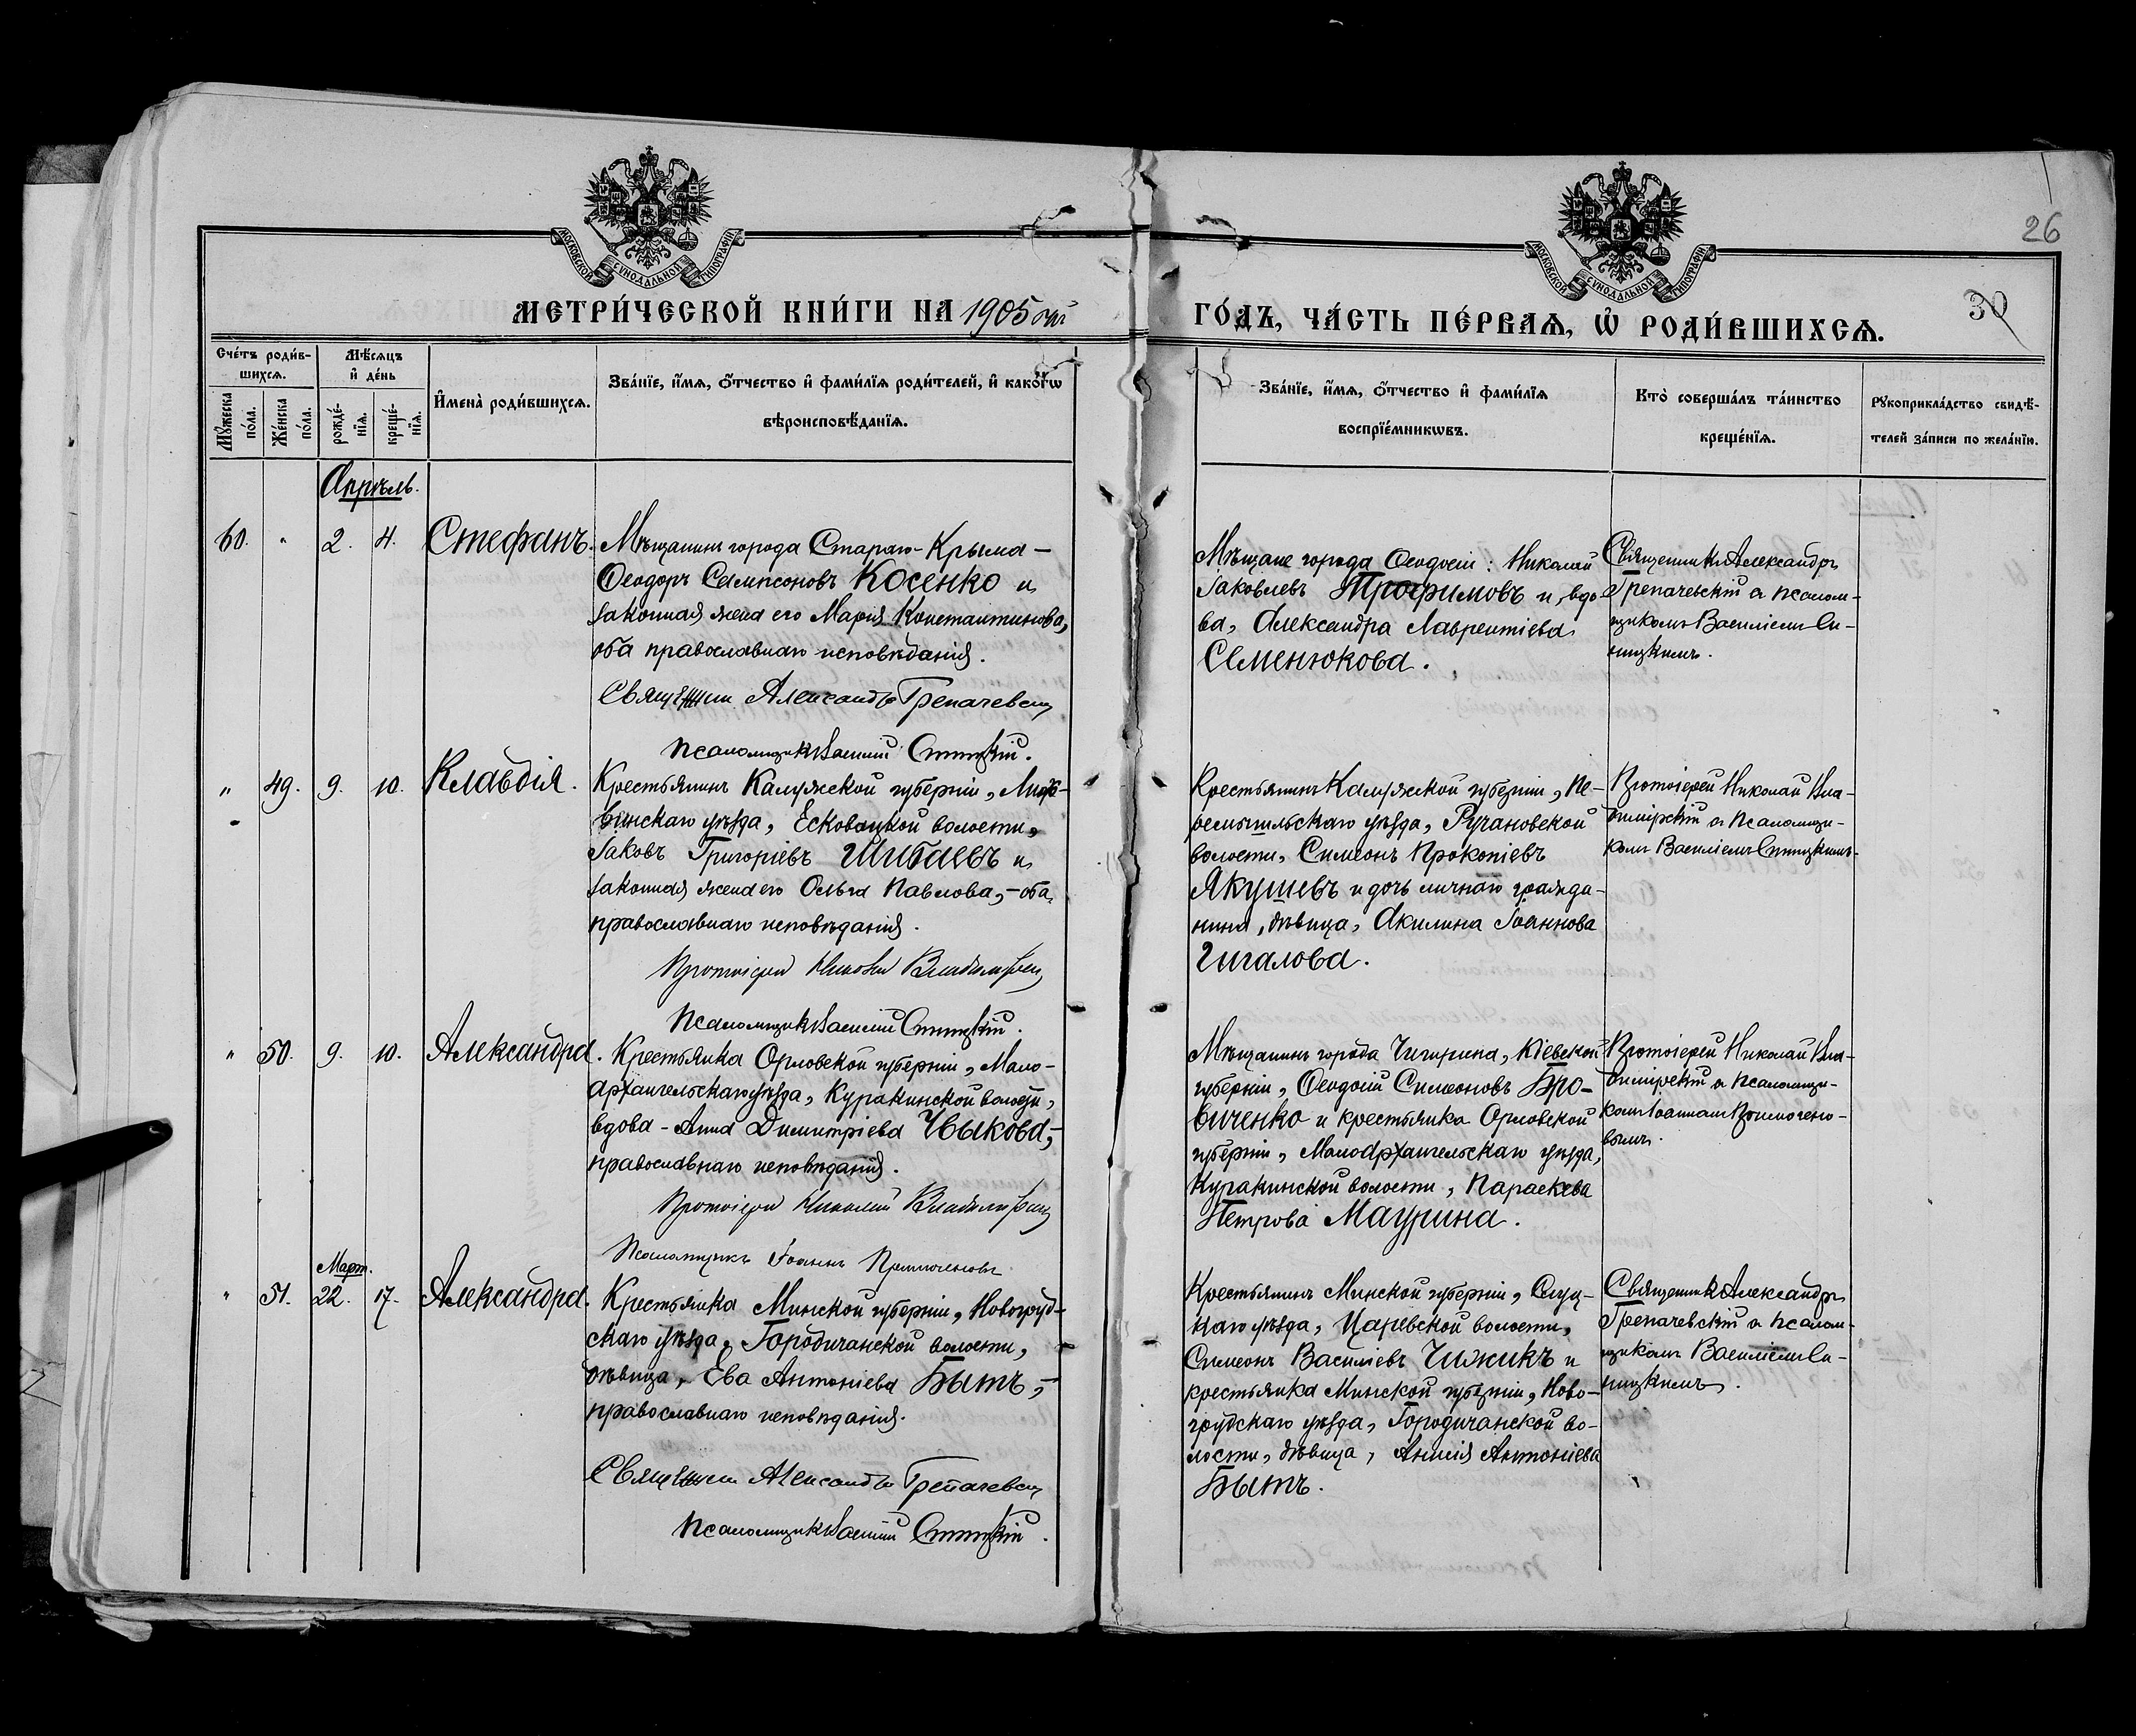 26
30
МОСКОВСКОЙ СѴНОДАЛЬНОЙ ТИПОГРАФІИ
МОСКОВСКОЙ СѴНОДАЛЬНОЙ ТИПОГРАФІИ
МЕТРИ́ЧЕСКОЙ КНИ́ГИ НА 1905 ый
ГО́ДЪ, ЧА́СТЬ ПЕ́РВАѦ, Ѡ҆ РОДИ́ВШИХСѦ.
Сче́тъ роди́в-
шихсѧ.
Мꙋ́жеска
по́ла.
Же́нска
по́ла.
Мѣ́сѧцъ
и҆ де́нь
рожде́-
нїѧ.
креще́-
нїѧ.
И҆мена̀ роди́вшихсѧ.
Зва́нїе, и҆́мѧ, ѻ҆́тчество и҆ фами́лїѧ роди́телей, и҆ како́гѡ
вѣроисповѣ́данїѧ.
Зва́нїе, и҆́мѧ, ѻ҆́тчество и҆ фами́лїѧ
воспрїе́мникѡвъ.
Кто̀ соверша́лъ та́инство
креще́нїѧ.
Рꙋкоприкла́дство свидѣ́-
телей за́писи по жела́нїю.
Апрѣль.
60. " 2. 4. Стефанъ.
Мѣщанинъ города Стараго-Крыма -
Ѳеодоръ Сампсоновъ Косенко и
законная жена его Марія Константинова,
оба православнаго исповѣданія.
Священник Александръ Грепачевскій
Псаломщикъ Василій Синицкій.
Мѣщане города Ѳеодосіи: Николай
Іаковлевъ Трофимовъ и, вдо-
ва, Александра Лаврентіева
Семенюкова.
Священникъ Александръ
Грепачевскій съ псалом-
щикомъ Василіемъ Си-
ницкимъ.
" 49. 9. 10. Клавдія.
Крестьянинъ Калужской губерніи, Лих-
винскаго уѣзда, Есковицкой волости,
Іаковъ Григоріевъ Шибаевъ и
законная жена его Ольга Павлова, - оба
православнаго исповѣданія.
Протоіерей Николай Владимірскій
Псаломщикъ Василій Синицкій.
Крестьянинъ Калужской губерніи, Пе-
ремышльскаго уѣзда, Ручановской
волости, Симеонъ Прокопіевъ
Якушевъ и дочь личнаго гражда-
нина, дѣвица, Акилина Іоаннова
Чигалова.
Протоіерей Николай Вла-
димірскій съ псаломщи-
комъ Василіемъ Синицкимъ.
" 50. 9. 10. Александра.
Крестьянка Орловской губерніи, Мало-
архангельскаго уѣзда, Куракинской волости,
вдова - Анна Димитріева Чвыкова, -
православнаго исповѣданія.
Протоіерей Николай Владимірскій
Псаломщикъ Іоаннъ
Мѣщанинъ города Чигирина, Кіевской
губерніи, Ѳеодосій Симеоновъ Бро-
виченко и крестьянка Орловской
губерніи, Малоархангельскаго уѣзда,
Куракинской волости, Параскева
Петрова Маурина.
Протоіерей Николай Вла-
димірскій съ псаломщи-
комъ Іоанномъ
вымъ.
Март.
" 51. 22. 17. Александра.
Крестьянка Минской губерніи, Новогруд-
скаго уѣзда, Городичанской волости,
дѣвица, Ева Антоніева Бытъ, -
православнаго исповѣданія.
Священник Александръ Грепачевскій
Псаломщикъ Василій Синицкій.
Крестьянинъ Минской губерніи, Слуц-
каго уѣзда, Царевской волости,
Симеонъ Василіевъ Чижикъ и
крестьянка Минской губерніи, Ново-
грудскаго уѣзда, Городичанской во-
лости, дѣвица, Анисія Антоніева
Бытъ.
Священникъ Александръ
Грепачевскій съ псалом-
щикомъ Василіемъ Си-
ницкимъ.